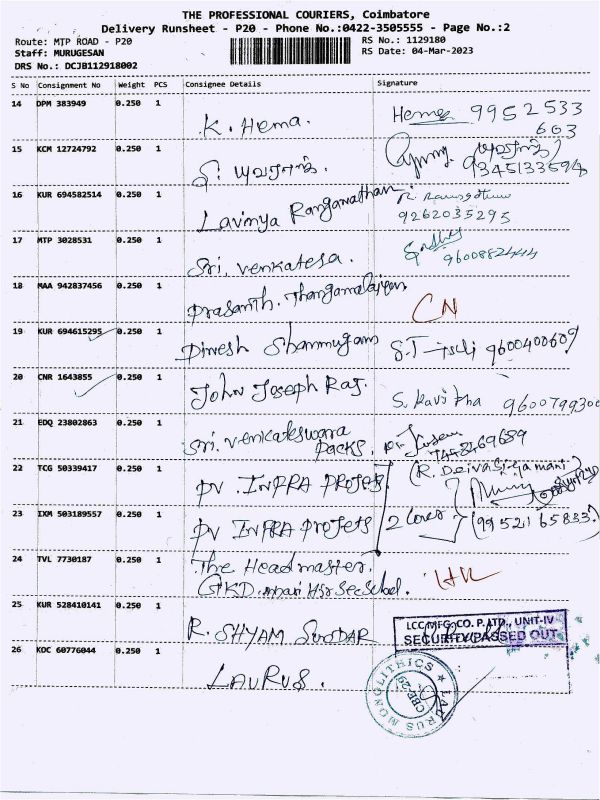 THE PROFESSIONAL COURIERS, Coimbatore
Delivery Runsheet - P20 - Phone No.:0422-3505555 - Page No.:2
Route: MTP ROAD - P20
RS No.: 1129180
Staff: MURUGESAN
RS Date: 04-Mar-2023
DRS No.: DCJB112918002
S No Consignment No Weight PCS Consignee Details Signature
14 DPM 383949 0.250 1 K. Hema. Hema 9952533
603
15 KCM 12724792 0.250 1 யுவராஜ். யுவராஜ்
9345133594
16 KUR 694582514 0.250 1 Lavinya Ranganathan.
9262035295
17 MTP 3028531 0.250 1 Sri. Venkatesa.
9600882444
18 MAA 942837456 0.250 1 Prasanth. CN
19 KUR 694615295 0.250 1 Dinesh Shanmugam S.T 9600400609
20 CNR 1643855 0.250 1 John Joseph Raj. S. Kavitha 9600799300
21 EDQ 23802863 0.250 1 Sri. Venkateswara
Packs.
22 TCG 50339417 0.250 1 PV. INFRA (R. Deivasigamani)
23 IXM 503189557 0.250 1 PV INFRA 2 Cover (99521 65833.)
24 TVL 7730187 0.250 1 The Headmaster.
GKD
25 KUR 528410141 0.250 1 R. SHYAM SUNDAR
LCC MFG. CO. P. LTD., UNIT-IV
SECURITY PASSED OUT
26 KDC 60776044 0.250 1 LAURUS.
LAURUS MONOLITHICS
CBE-29